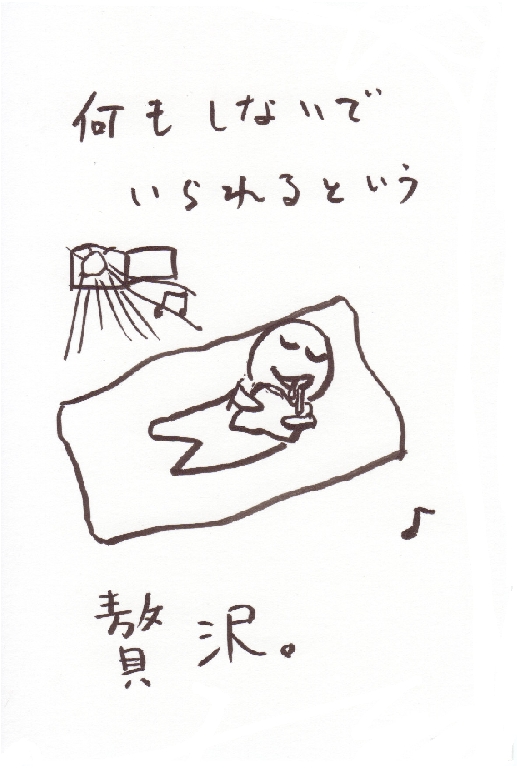 何もしないで
いられるという
贅沢。